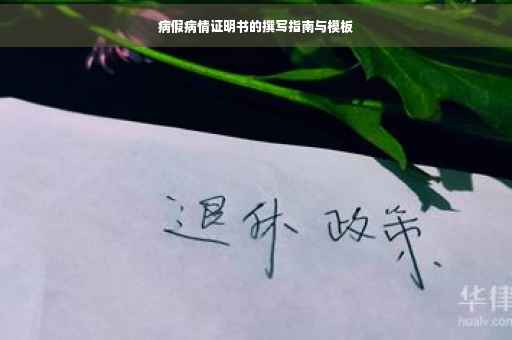 病假病情证明书的撰写指南与模板
退休政策
华律
hualv.com